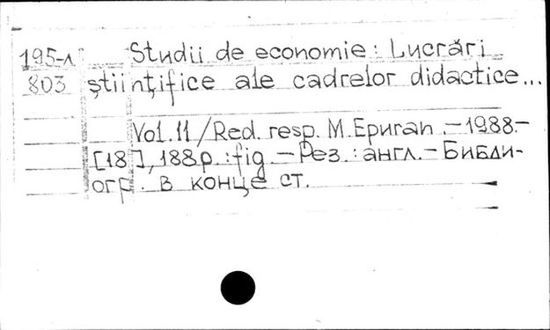 195-л Studii de economie: Lucrări
803 ştiinţifice ale cadrelor didactice...
Vol.11/Red. resp. M.Epuran.-1988.-
[18], 188p.:fig.-Рез.: англ.-Библи-
огр. в конце ст.